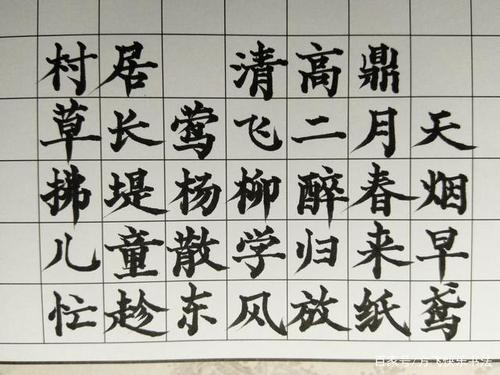 村居 清 高鼎
草长莺飞二月天
拂堤杨柳醉春烟
儿童散学归来早
忙趁东风放纸鸢